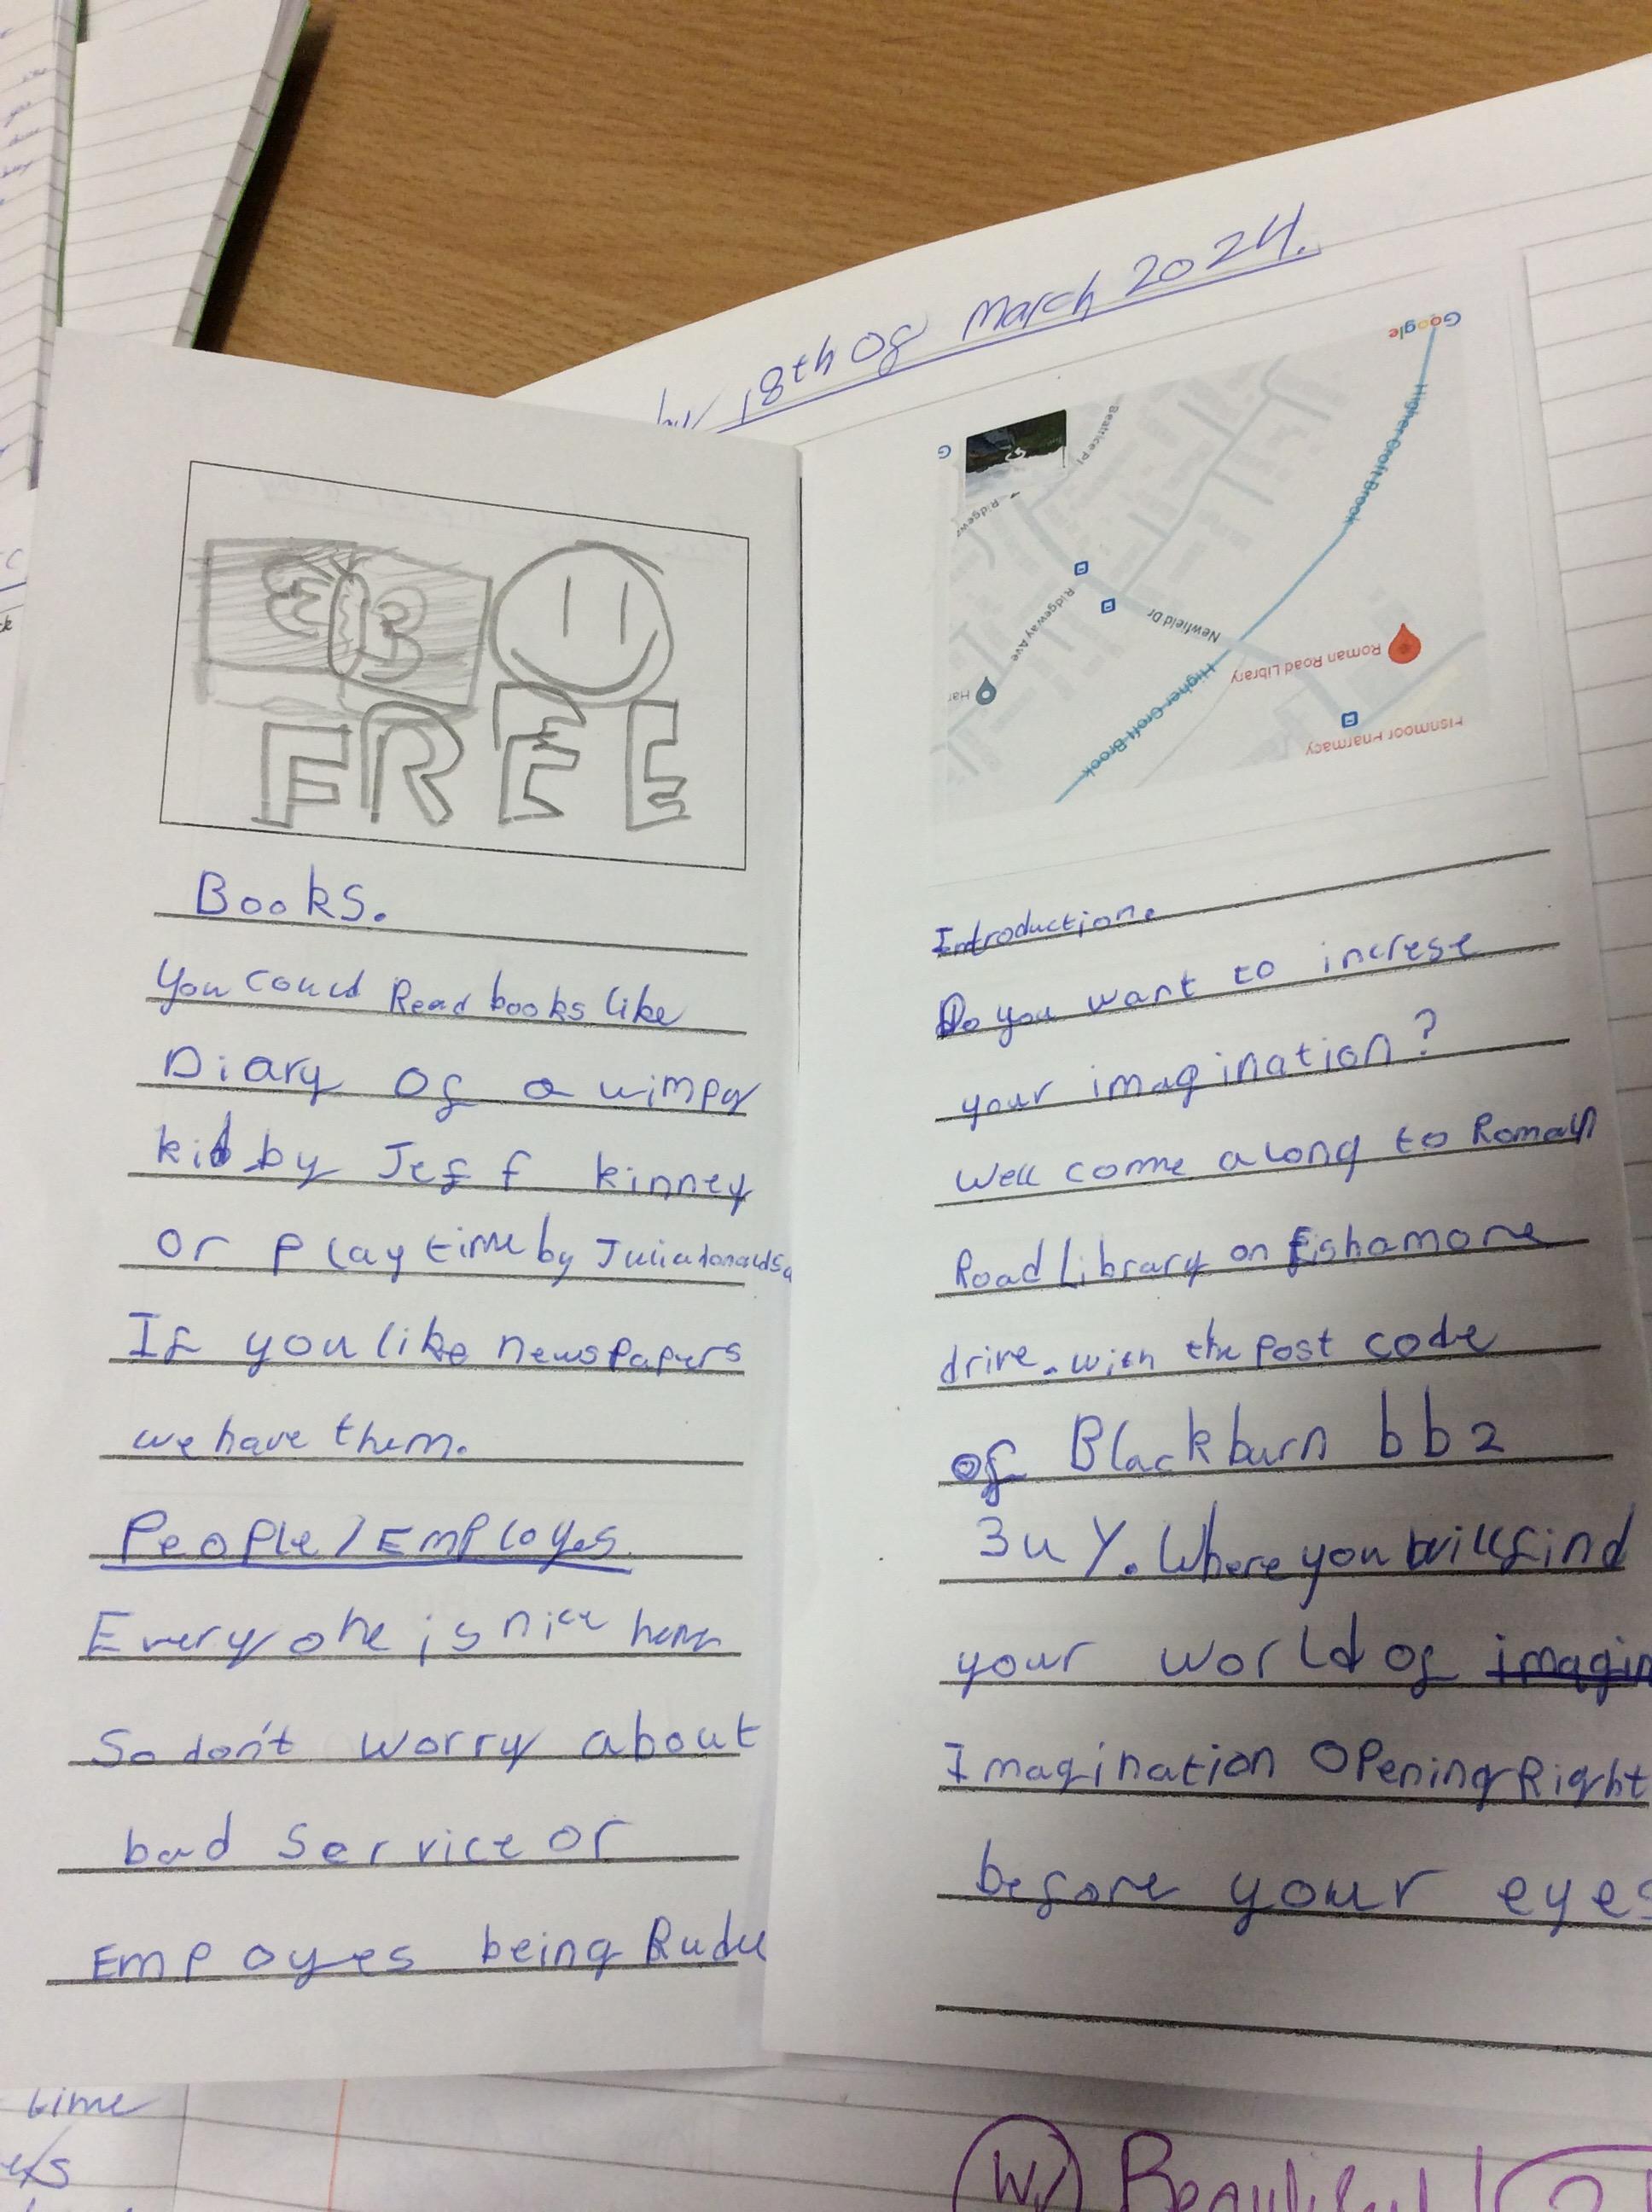 18th of March 2024.
FREE
Books.
You could Read books like
Diary of a wimpy
kid by Jeff kinney
or Playtime by Julia donaldso
If you like newspapers
we have them.
People/Employes
Everyone is nice here
So don't worry about
bad service or
Empoyes being Rude
Google
Higher Croft Brook
Beatrice Pl
G
Ridgew
Ridgeway Ave
Newfield Dr
Roman Road Library
Har
Higher Croft Brook
Fishmoor Pharmacy
Introduction.
Do you want to increse
your imagination?
Well come along to Roman
Road Library on Fishamore
drive. with the post code
of Blackburn bb2
3uY. Where you will find
your world of imagin
Imagination Opening Right
before your eyes
time
Beautiful!